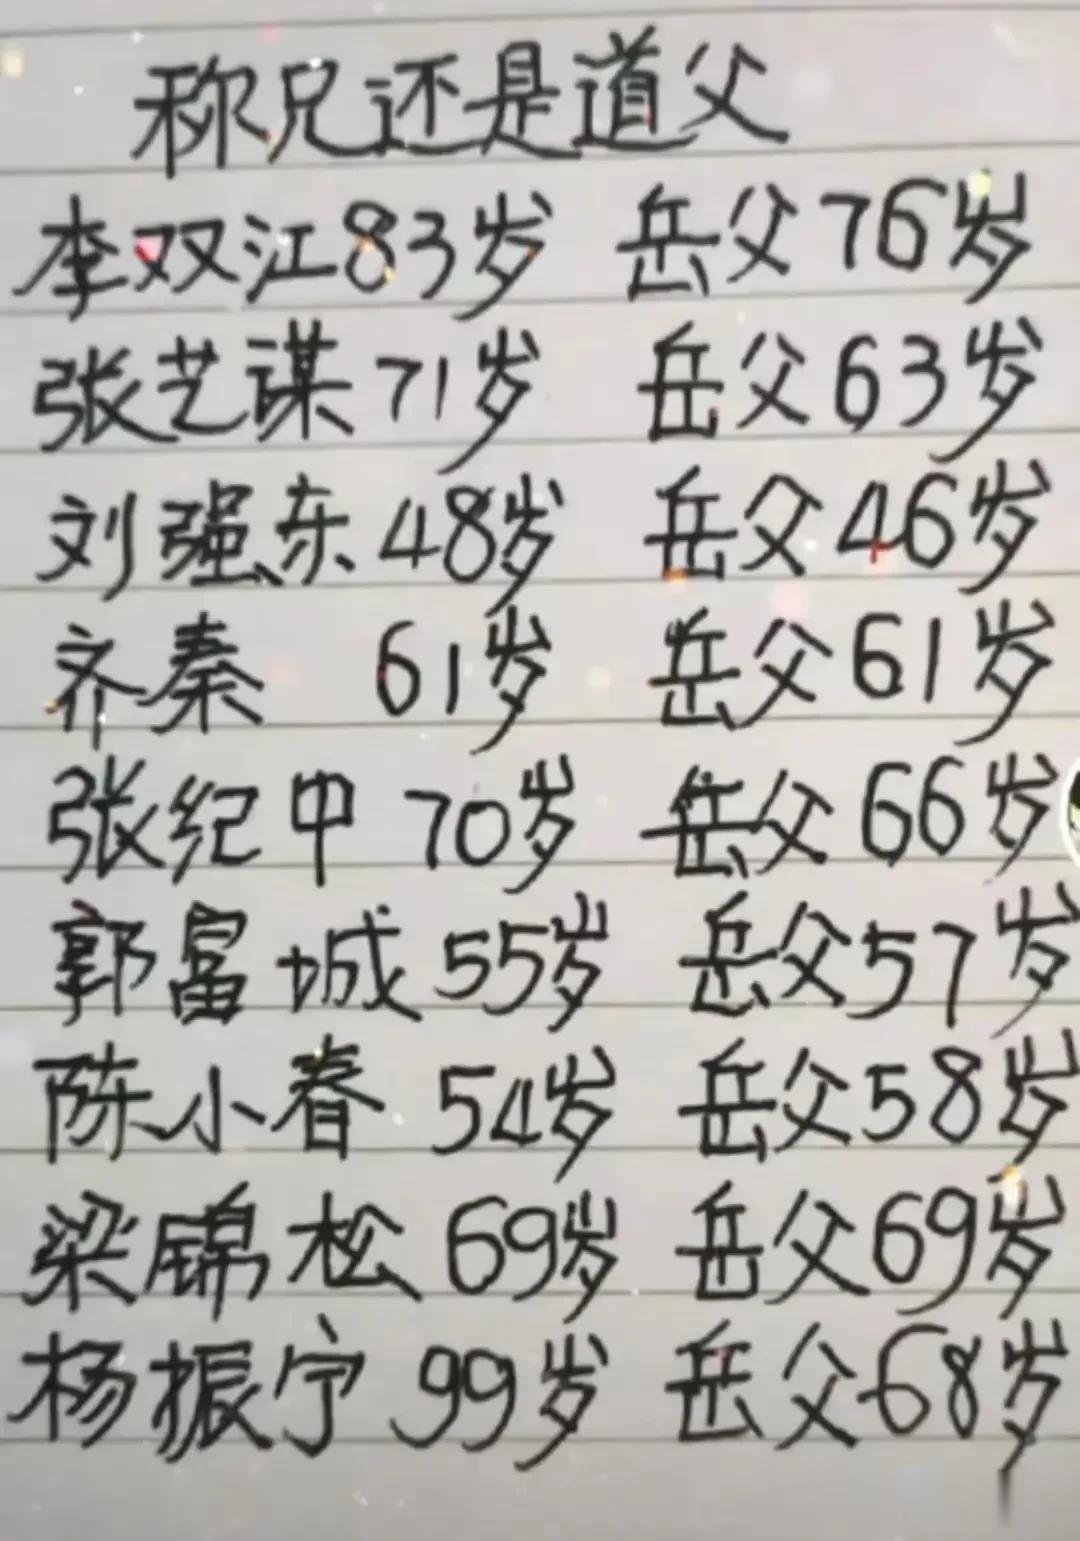 称兄还是道父
李双江83岁 岳父76岁
张艺谋71岁 岳父63岁
刘强东48岁 岳父46岁
齐秦 61岁 岳父61岁
张纪中 70岁 岳父66岁
郭富城 55岁 岳父57岁
陈小春 54岁 岳父58岁
梁锦松 69岁 岳父69岁
杨振宁 99岁 岳父68岁